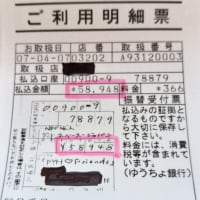 ご利用明細票
お取扱日 店番 取扱番号
07-04-07 03202 A93120003
取扱店
払込口座 00900-9 78879
払込金額 *58,948 料金 *366
振替受付票
払込みの証拠と
なるものですか
ら大切に保存し
て下さい。
料金には、消費
税等が含まれて
います。
(ゆうちょ銀行)
00900-9
78879
¥58948